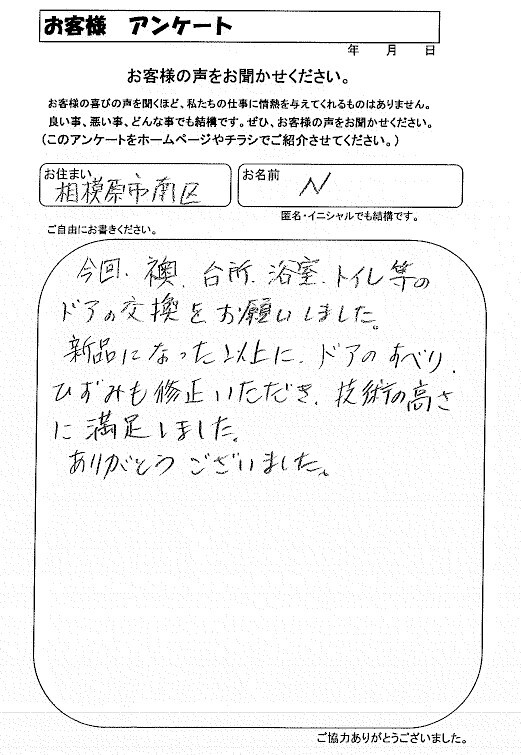 お客様 アンケート
年 月 日
お客様の声をお聞かせください。
お客様の喜びの声を聞くほど、私たちの仕事に情熱を与えてくれるものはありません。
良い事、悪い事、どんな事でも結構です。ぜひ、お客様の声をお聞かせください。
(このアンケートをホームページやチラシでご紹介させてください。)
お住まい
相模原市南区
お名前
N
匿名・イニシャルでも結構です。
ご自由にお書きください。
今回、襖、台所、浴室、トイレ等の
ドアの交換をお願いしました。
新品になった以上に、ドアのすべり、
ひずみも修正いただき、技術の高さ
に満足しました。
ありがとうございました。
ご協力ありがとうございました。